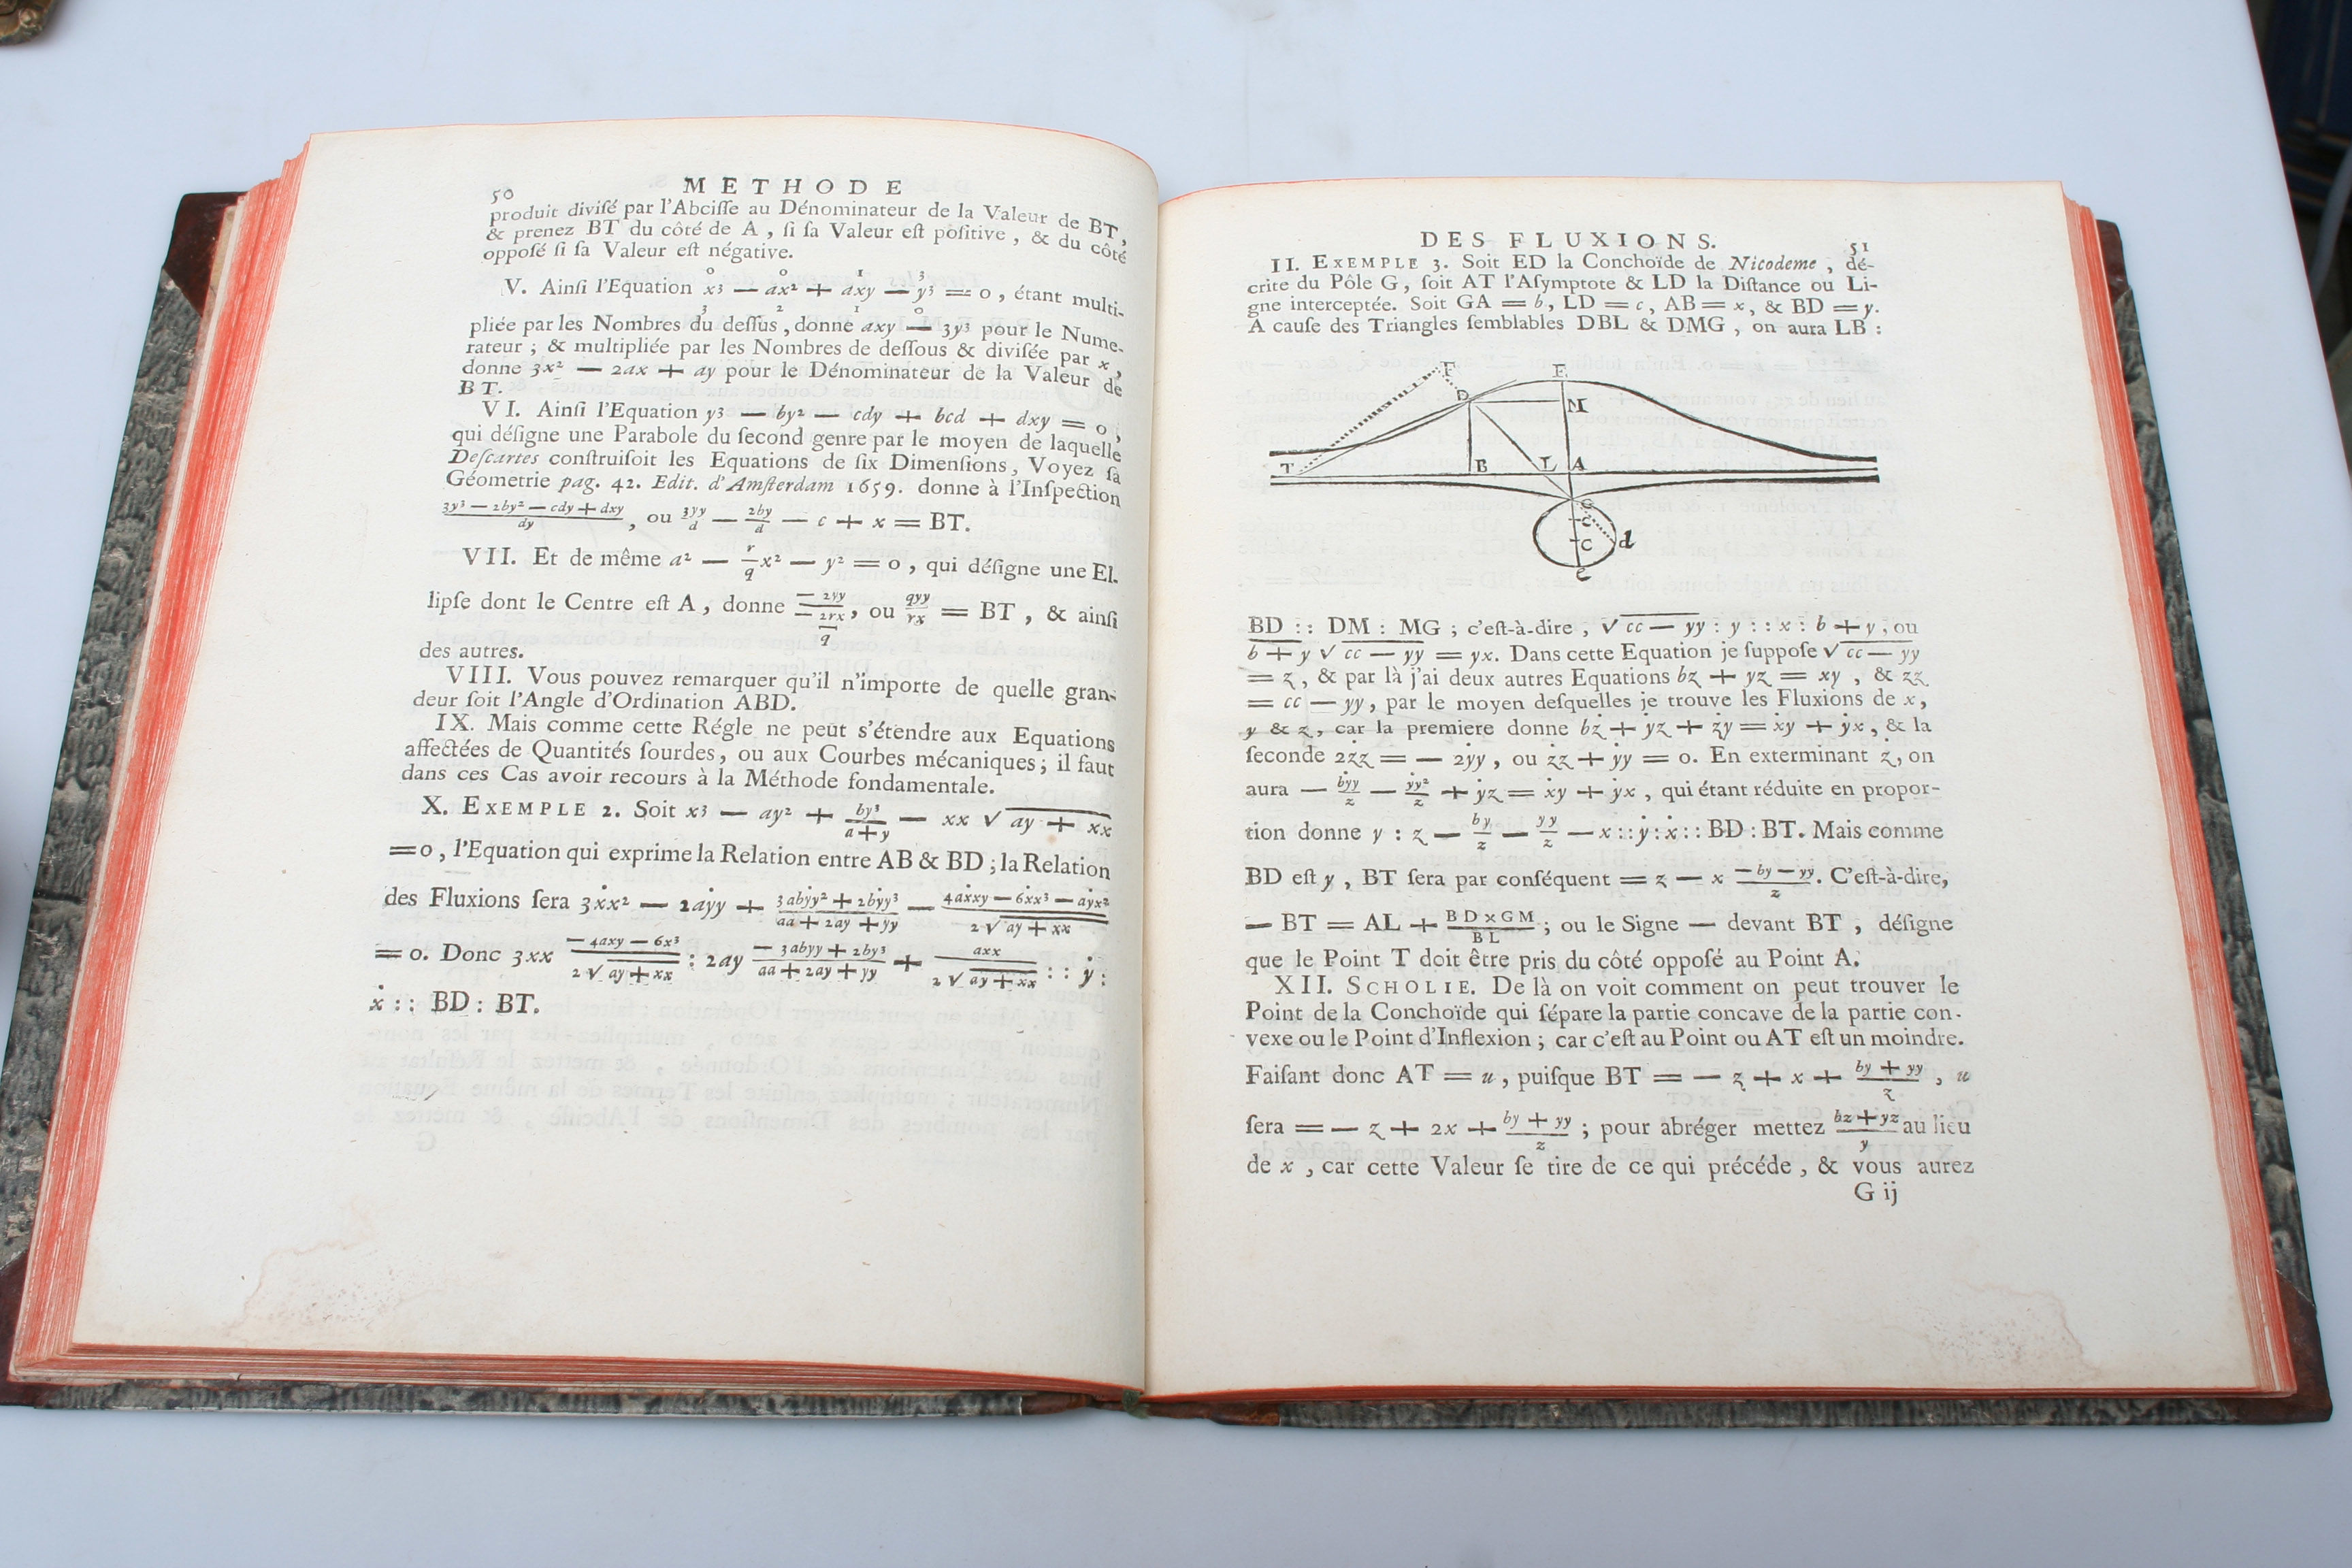 50
METHODE
produit divisé par l'Abcisse au Dénominateur de la Valeur de BT,
& prenez BT du côté de A, si sa Valeur est positive, & du côté
opposé si sa Valeur est négative.
0 0 1 3
V. Ainsi l'Equation x³ — ax² + axy — y³ = 0, étant multi-
3 2 1 0
pliée par les Nombres du dessus, donne axy — 3y³ pour le Nume-
rateur ; & multipliée par les Nombres de dessous & divisée par x,
donne 3x² — 2ax + ay pour le Dénominateur de la Valeur de
BT.
VI. Ainsi l'Equation y³ — by² — cdy + bcd + dxy = 0,
qui désigne une Parabole du second genre par le moyen de laquelle
Descartes construisoit les Equations de six Dimensions, Voyez sa
Géometrie pag. 42. Edit. d'Amsterdam 1659. donne à l'Inspection
(3y³ — 2by² — cdy + dxy)/dy, ou 3yy/d — 2by/d — c + x = BT.
VII. Et de même a² — r/q x² — y² = 0, qui désigne une El-
lipse dont le Centre est A, donne — 2yy / (— 2rx/q), ou qyy/rx = BT, & ainsi
des autres.
VIII. Vous pouvez remarquer qu'il n'importe de quelle gran-
deur soit l'Angle d'Ordination ABD.
IX. Mais comme cette Régle ne peut s'étendre aux Equations
affectées de Quantités sourdes, ou aux Courbes mécaniques ; il faut
dans ces Cas avoir recours à la Méthode fondamentale.
X. EXEMPLE 2. Soit x³ — ay² + by³/(a+y) — xx √(ay + xx)
= 0, l'Equation qui exprime la Relation entre AB & BD ; la Relation
des Fluxions sera 3ẋx² — 2aẏy + (3abẏy² + 2bẏy³)/(aa + 2ay + yy) — (4aẋxy — 6ẋx³ — aẏx²)/(2√(ay + xx))
= 0. Donc 3xx (— 4axy — 6x³)/(2√(ay + xx)) : 2ay (— 3abyy + 2by³)/(aa + 2ay + yy) + axx/(2√(ay + xx)) :: ẏ :
ẋ :: BD : BT.
DES FLUXIONS.
51
II. EXEMPLE 3. Soit ED la Conchoïde de Nicodeme, dé-
crite du Pôle G, soit AT l'Asymptote & LD la Distance ou Li-
gne interceptée. Soit GA = b, LD = c, AB = x, & BD = y.
A cause des Triangles semblables DBL & DMG, on aura LB :
F
E
D
M
T
B
L
A
G
c
C
d
e
BD :: DM : MG ; c'est-à-dire, √(cc — yy) : y :: x : b + y, ou
b + y √(cc — yy) = yx. Dans cette Equation je suppose √(cc — yy)
= z, & par là j'ai deux autres Equations bz + yz = xy, & zz
= cc — yy, par le moyen desquelles je trouve les Fluxions de x,
y & z, car la premiere donne bż + ẏz + ży = ẋy + ẏx, & la
seconde 2żz = — 2ẏy, ou żz + ẏy = 0. En exterminant ż, on
aura — bẏy/z — ẏy²/z + ẏz = ẋy + ẏx, qui étant réduite en propor-
tion donne y : z — by/z — yy/z — x :: ẏ : ẋ :: BD : BT. Mais comme
BD est y, BT sera par conséquent = z — x (— by — yy)/z. C'est-à-dire,
— BT = AL + (BD x GM)/BL ; ou le Signe — devant BT, désigne
que le Point T doit être pris du côté opposé au Point A.
XII. SCHOLIE. De là on voit comment on peut trouver le
Point de la Conchoïde qui sépare la partie concave de la partie con-
vexe ou le Point d'Inflexion ; car c'est au Point ou AT est un moindre.
Faisant donc AT = u, puisque BT = — z + x + (by + yy)/z, u
sera = — z + 2x + (by + yy)/z ; pour abréger mettez (bz + yz)/y au lieu
de x, car cette Valeur se tire de ce qui précéde, & vous aurez
G ij